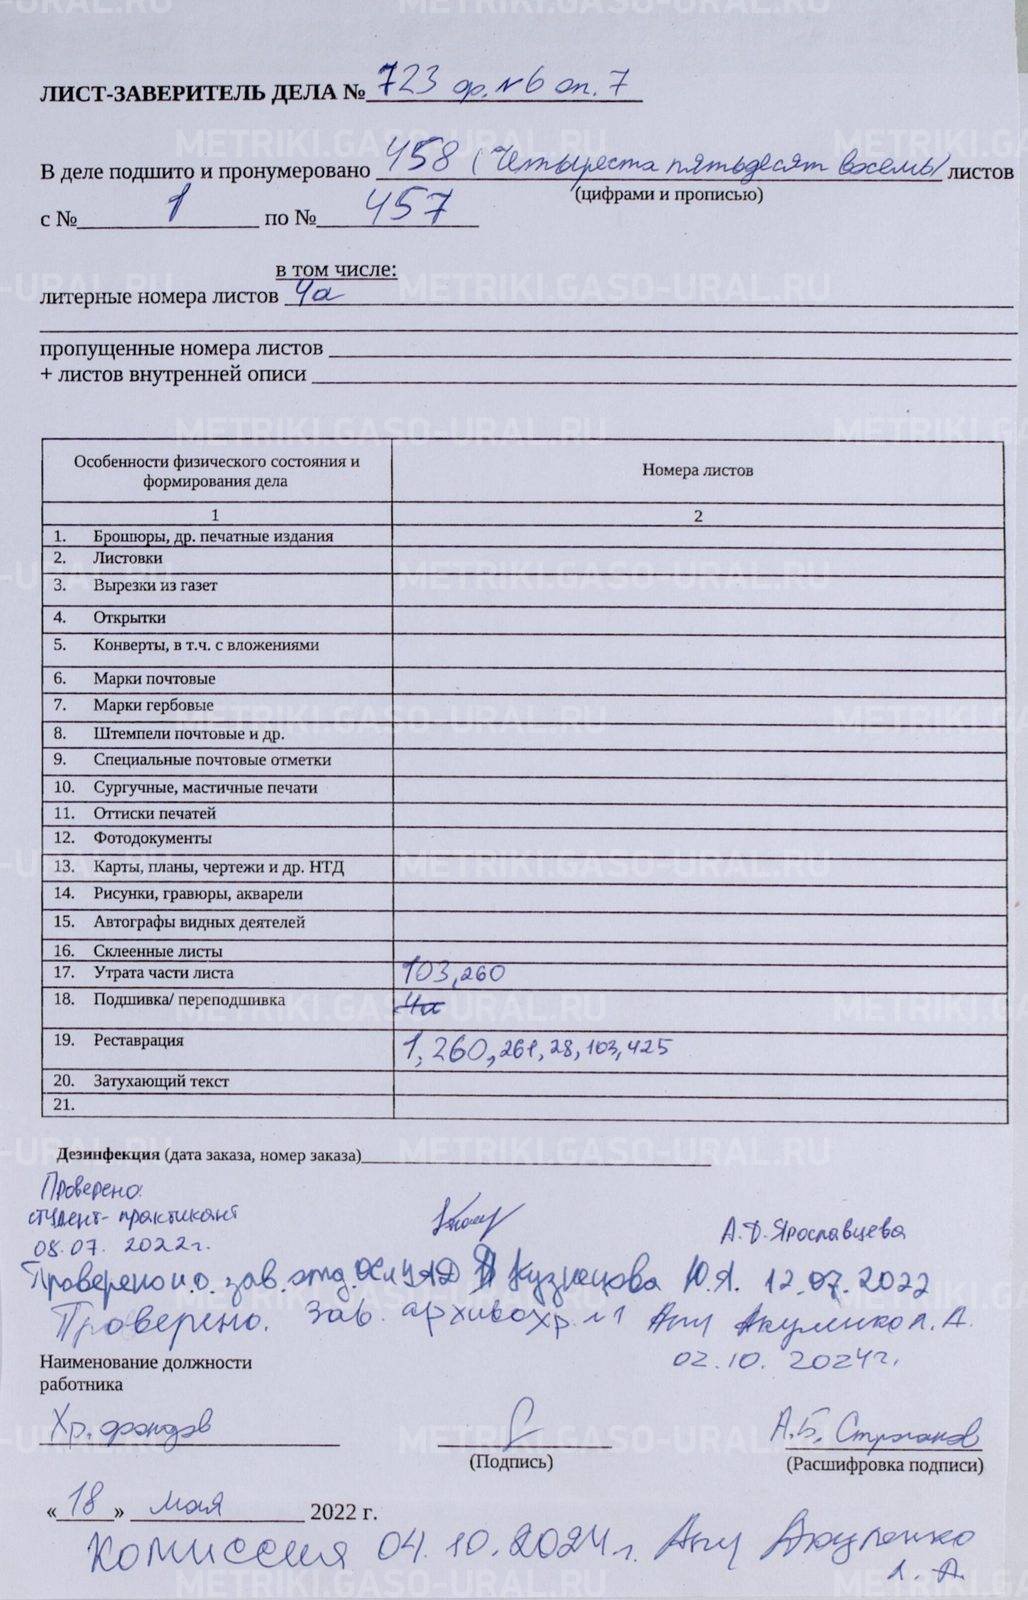 ЛИСТ-ЗАВЕРИТЕЛЬ ДЕЛА № 723 ф. №6 оп. 7
В деле подшито и пронумеровано 458 (Четыреста пятьдесят восемь) листов
(цифрами и прописью)
с № 1 по № 457
в том числе:
литерные номера листов 4а
пропущенные номера листов
+ листов внутренней описи
Особенности физического состояния и формирования дела Номера листов
1 2
1. Брошюры, др. печатные издания
2. Листовки
3. Вырезки из газет
4. Открытки
5. Конверты, в т.ч. с вложениями
6. Марки почтовые
7. Марки гербовые
8. Штемпели почтовые и др.
9. Специальные почтовые отметки
10. Сургучные, мастичные печати
11. Оттиски печатей
12. Фотодокументы
13. Карты, планы, чертежи и др. НТД
14. Рисунки, гравюры, акварели
15. Автографы видных деятелей
16. Склеенные листы
17. Утрата части листа 103, 260
18. Подшивка/ переподшивка 4а
19. Реставрация 1, 260, 261, 28, 103, 425
20. Затухающий текст
21.
Дезинфекция (дата заказа, номер заказа)
Проверено:
студент-практикант А.Д. Ярославцева
08.07. 2022г.
Проверено и.о. зав. отд. Кузнецова Ю.А. 12.07.2022
Проверено. Зав. архивохр. №1 Акуленко Л.А.
02.10. 2024г.
Наименование должности
работника
Хр. фондов А.Б. Строганов
(Подпись) (Расшифровка подписи)
«18» мая 2022 г.
Комиссия 04.10.2024г. Акуленко
Л.А.
METRIKI.GASO-URAL.RU